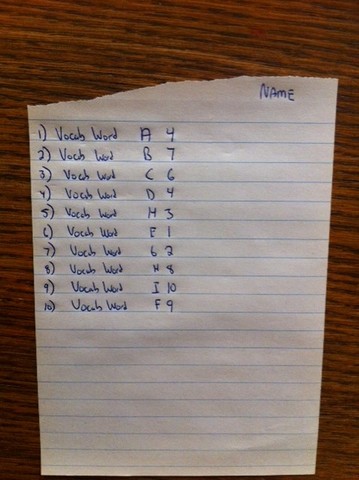 NAME
1) Vocab Word A 4
2) Vocab Word B 7
3) Vocab Word C 6
4) Vocab Word D 4
5) Vocab Word H 3
6) Vocab Word E 1
7) Vocab Word G 2
8) Vocab Word H 8
9) Vocab Word I 10
10) Vocab Word F 9